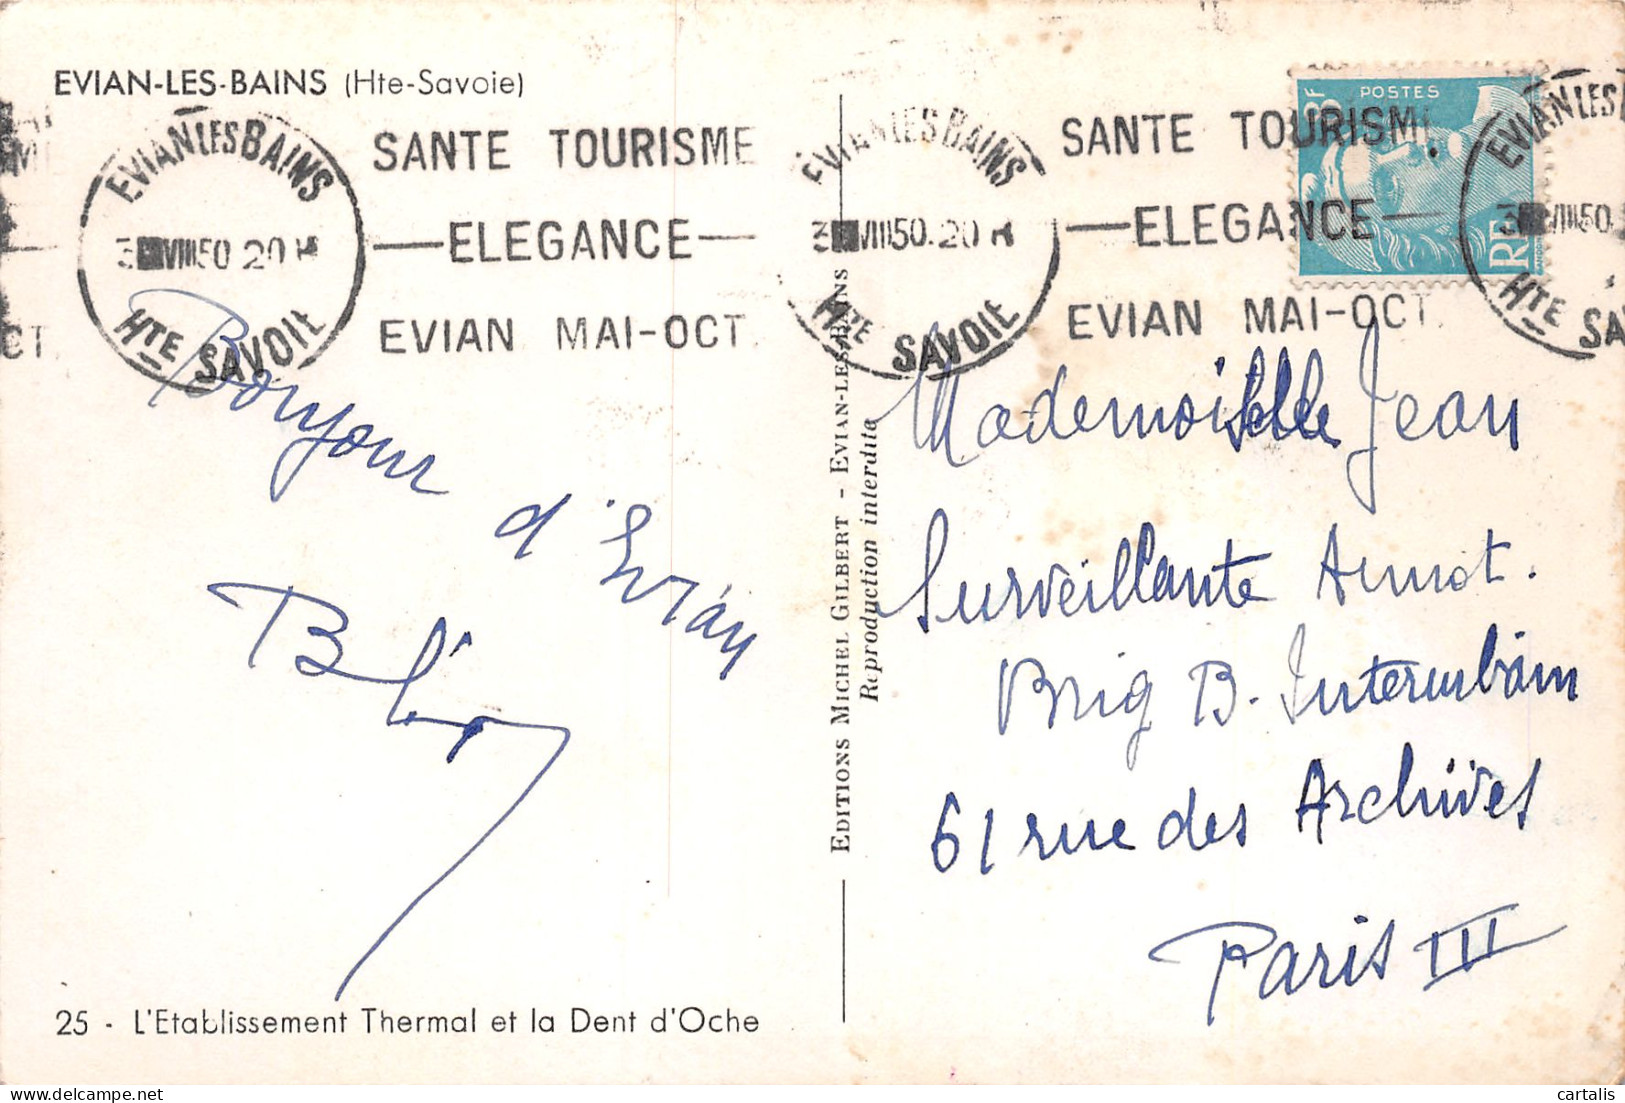 EVIAN-LES-BAINS (Hte-Savoie)
EVIAN LES BAINS
3 VIII 50. 20 H
HTE SAVOIE
SANTE TOURISME
—ELEGANCE—
EVIAN MAI-OCT.
EVIAN LES BAINS
3 VIII 50. 20 H
HTE SAVOIE
SANTE TOURISME
—ELEGANCE—
EVIAN MAI-OCT.
8F POSTES
RF
GANDON
EVIAN LES
3 VIII 50.
HTE SA
Bonjour
d'Evian
EDITIONS MICHEL GILBERT - EVIAN-LES-BAINS
Reproduction interdite
Mademoiselle Jean
Surveillante
Brig B. Interurbain
61 rue des Archives
Paris III
25 - L'Etablissement Thermal et la Dent d'Oche
cartalis